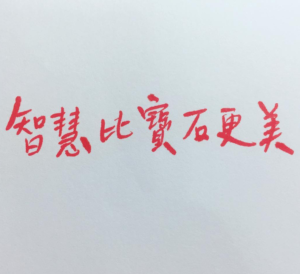 智慧比寶石更美